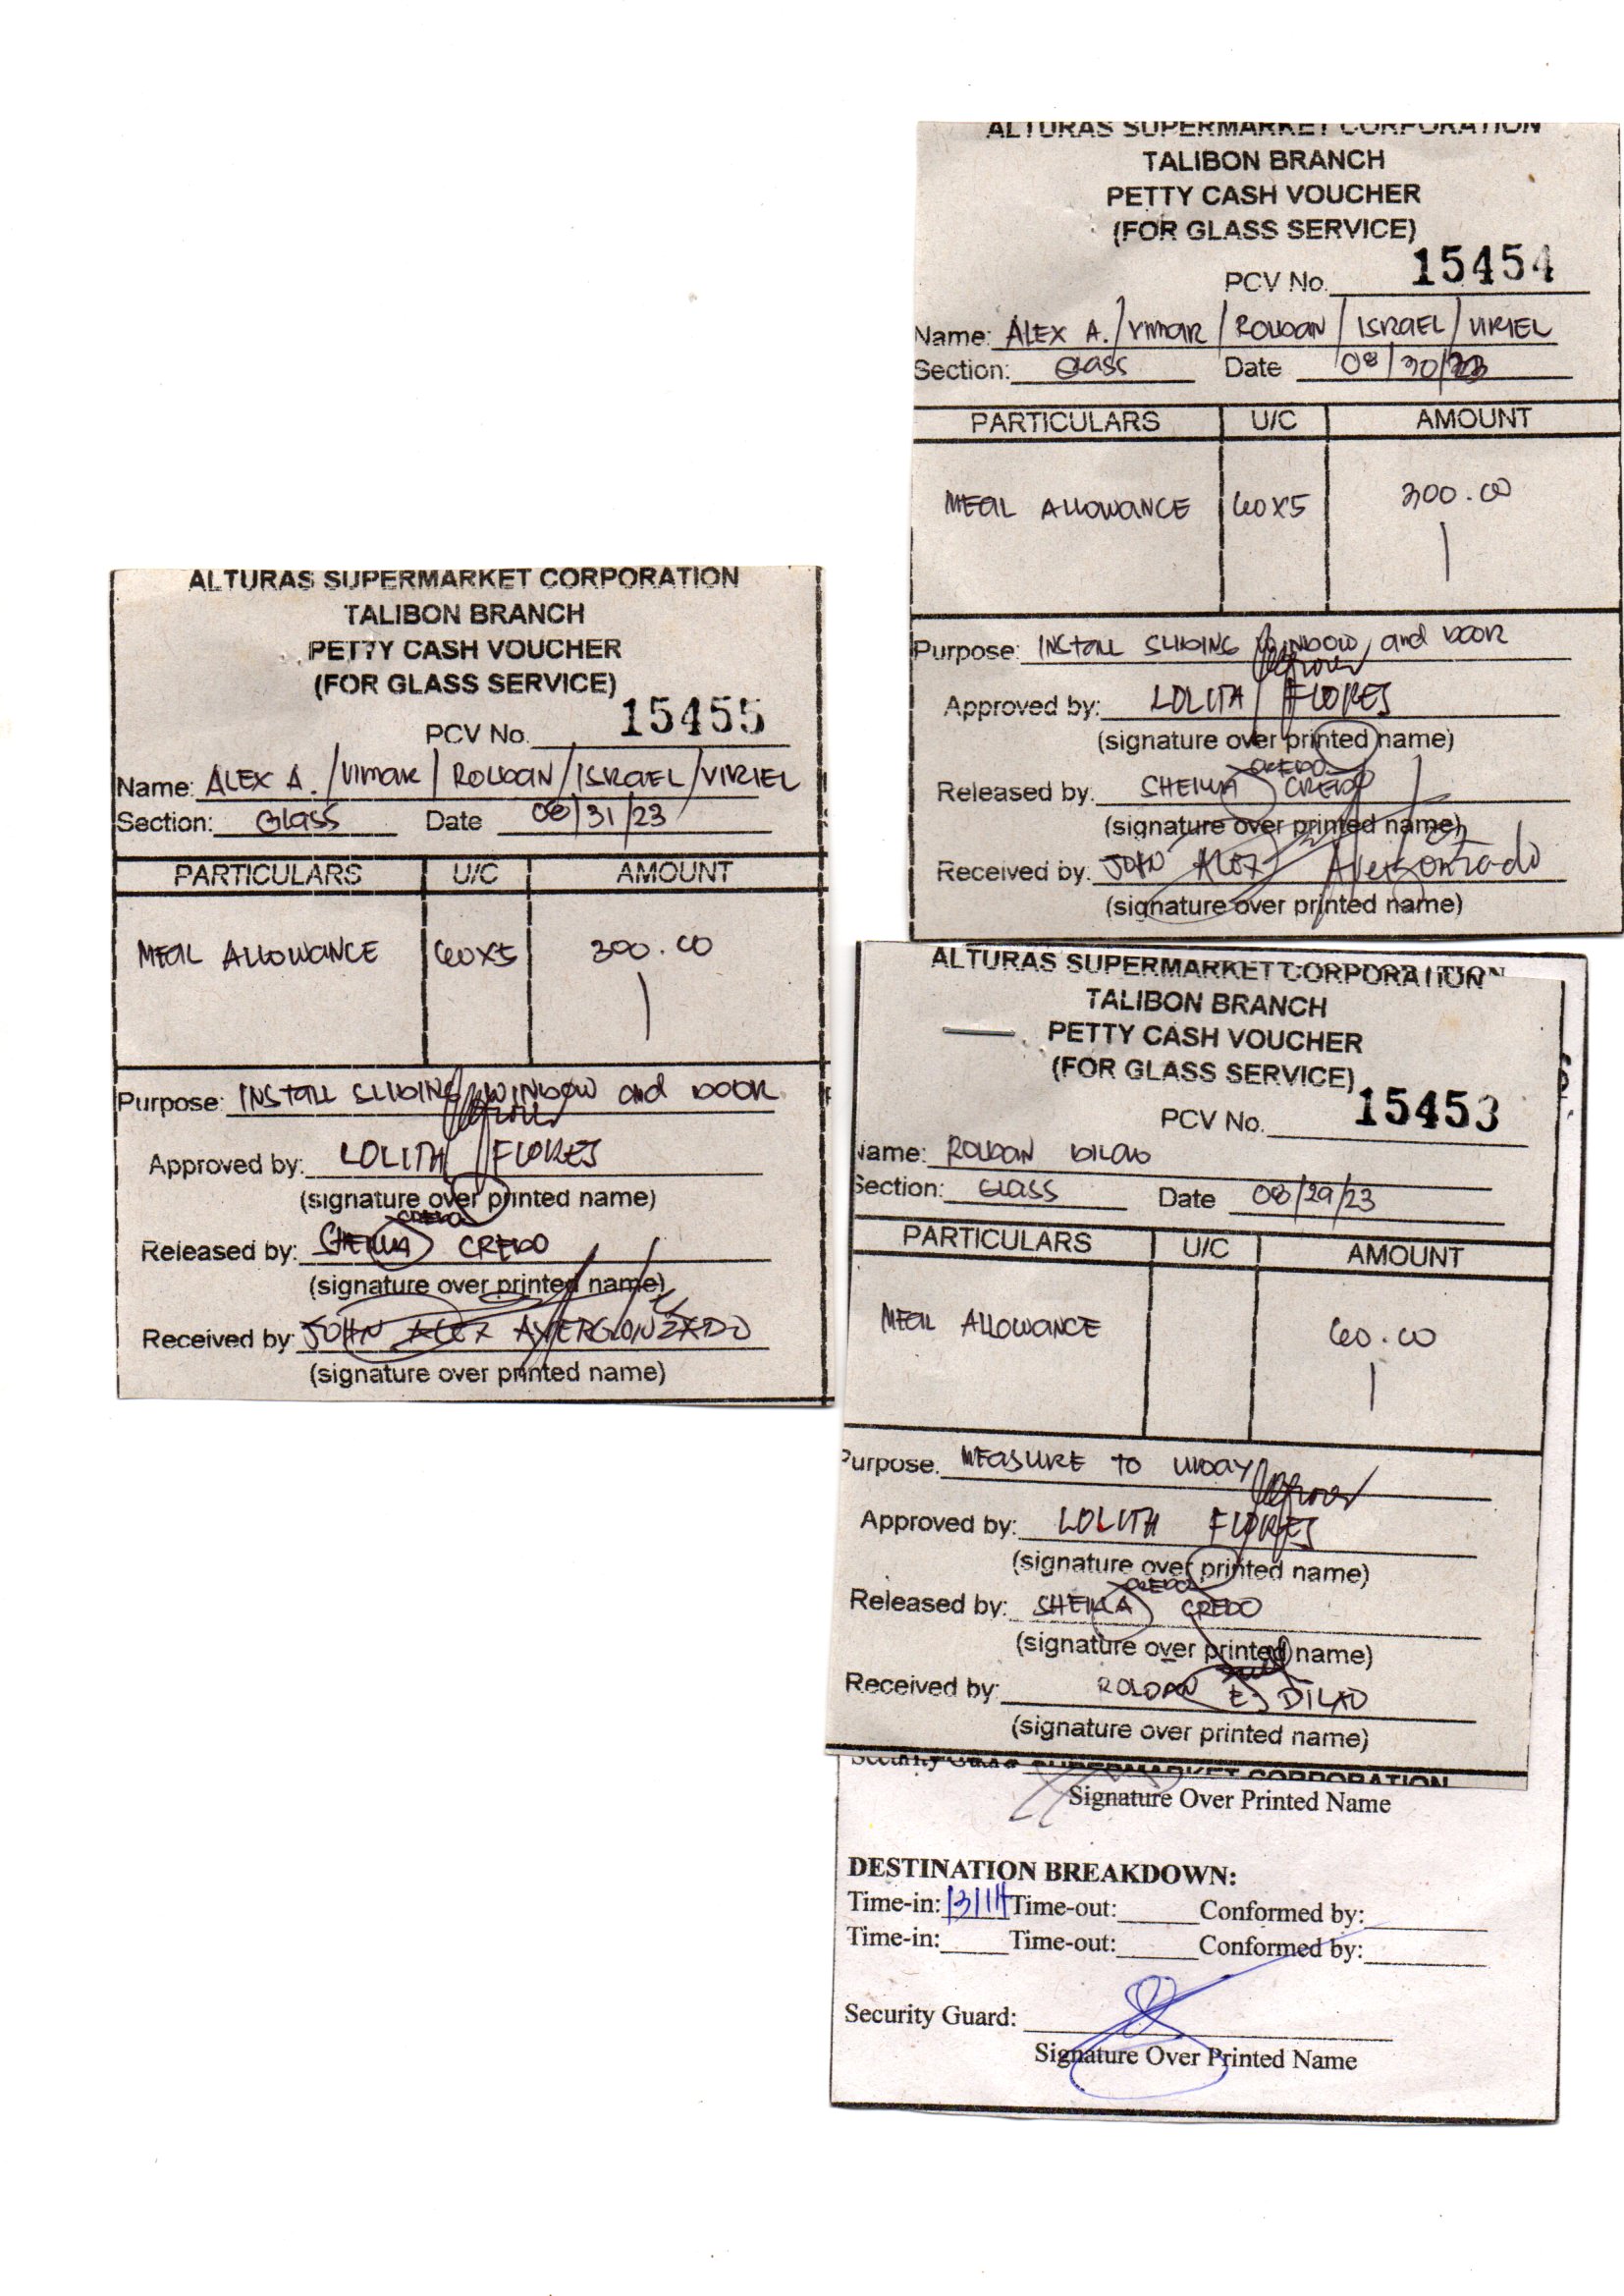 ALTURAS SUPERMARKET CORPORATION
TALIBON BRANCH
PETTY CASH VOUCHER
(FOR GLASS SERVICE)
PCV No. 15454
Name: ALEX A. / VIMAR / ROLDAN / ISRAEL / VIRIEL
Section: Glass Date 08/30/23
PARTICULARS U/C AMOUNT
MEAL ALLOWANCE 60X5 300.00
Purpose: INSTALL SLIDING WINDOW and DOOR
Approved by: LOLITA FLORES
(signature over printed name)
CREDO
Released by: SHEILLA CREDO
(signature over printed name)
Received by: JOHN ALEX
(signature over printed name)
ALTURAS SUPERMARKET CORPORATION
TALIBON BRANCH
PETTY CASH VOUCHER
(FOR GLASS SERVICE)
PCV No. 15455
Name: ALEX A. / VIMAR / ROLDAN / ISRAEL / VIRIEL
Section: Glass Date 08/31/23
PARTICULARS U/C AMOUNT
MEAL ALLOWANCE 60X5 300.00
Purpose: INSTALL SLIDING WINDOW and DOOR
Approved by: LOLITA FLORES
(signature over printed name)
CREDO
Released by: SHEILLA CREDO
(signature over printed name)
Received by: JOHN ALEX
(signature over printed name)
ALTURAS SUPERMARKET CORPORATION
TALIBON BRANCH
PETTY CASH VOUCHER
(FOR GLASS SERVICE)
PCV No. 15453
Name: ROLDAN DILAO
Section: Glass Date 08/29/23
PARTICULARS U/C AMOUNT
MEAL ALLOWANCE 60.00
Purpose. MEASURE TO UBAY
Approved by: LOLITA FLORES
(signature over printed name)
CREDO
Released by: SHEILLA CREDO
(signature over printed name)
Received by: ROLDAN E. DILAO
(signature over printed name)
Security Guard
SUPERMARKET CORPORATION
Signature Over Printed Name
DESTINATION BREAKDOWN:
Time-in: Time-out: Conformed by:
Time-in: Time-out: Conformed by:
Security Guard:
Signature Over Printed Name